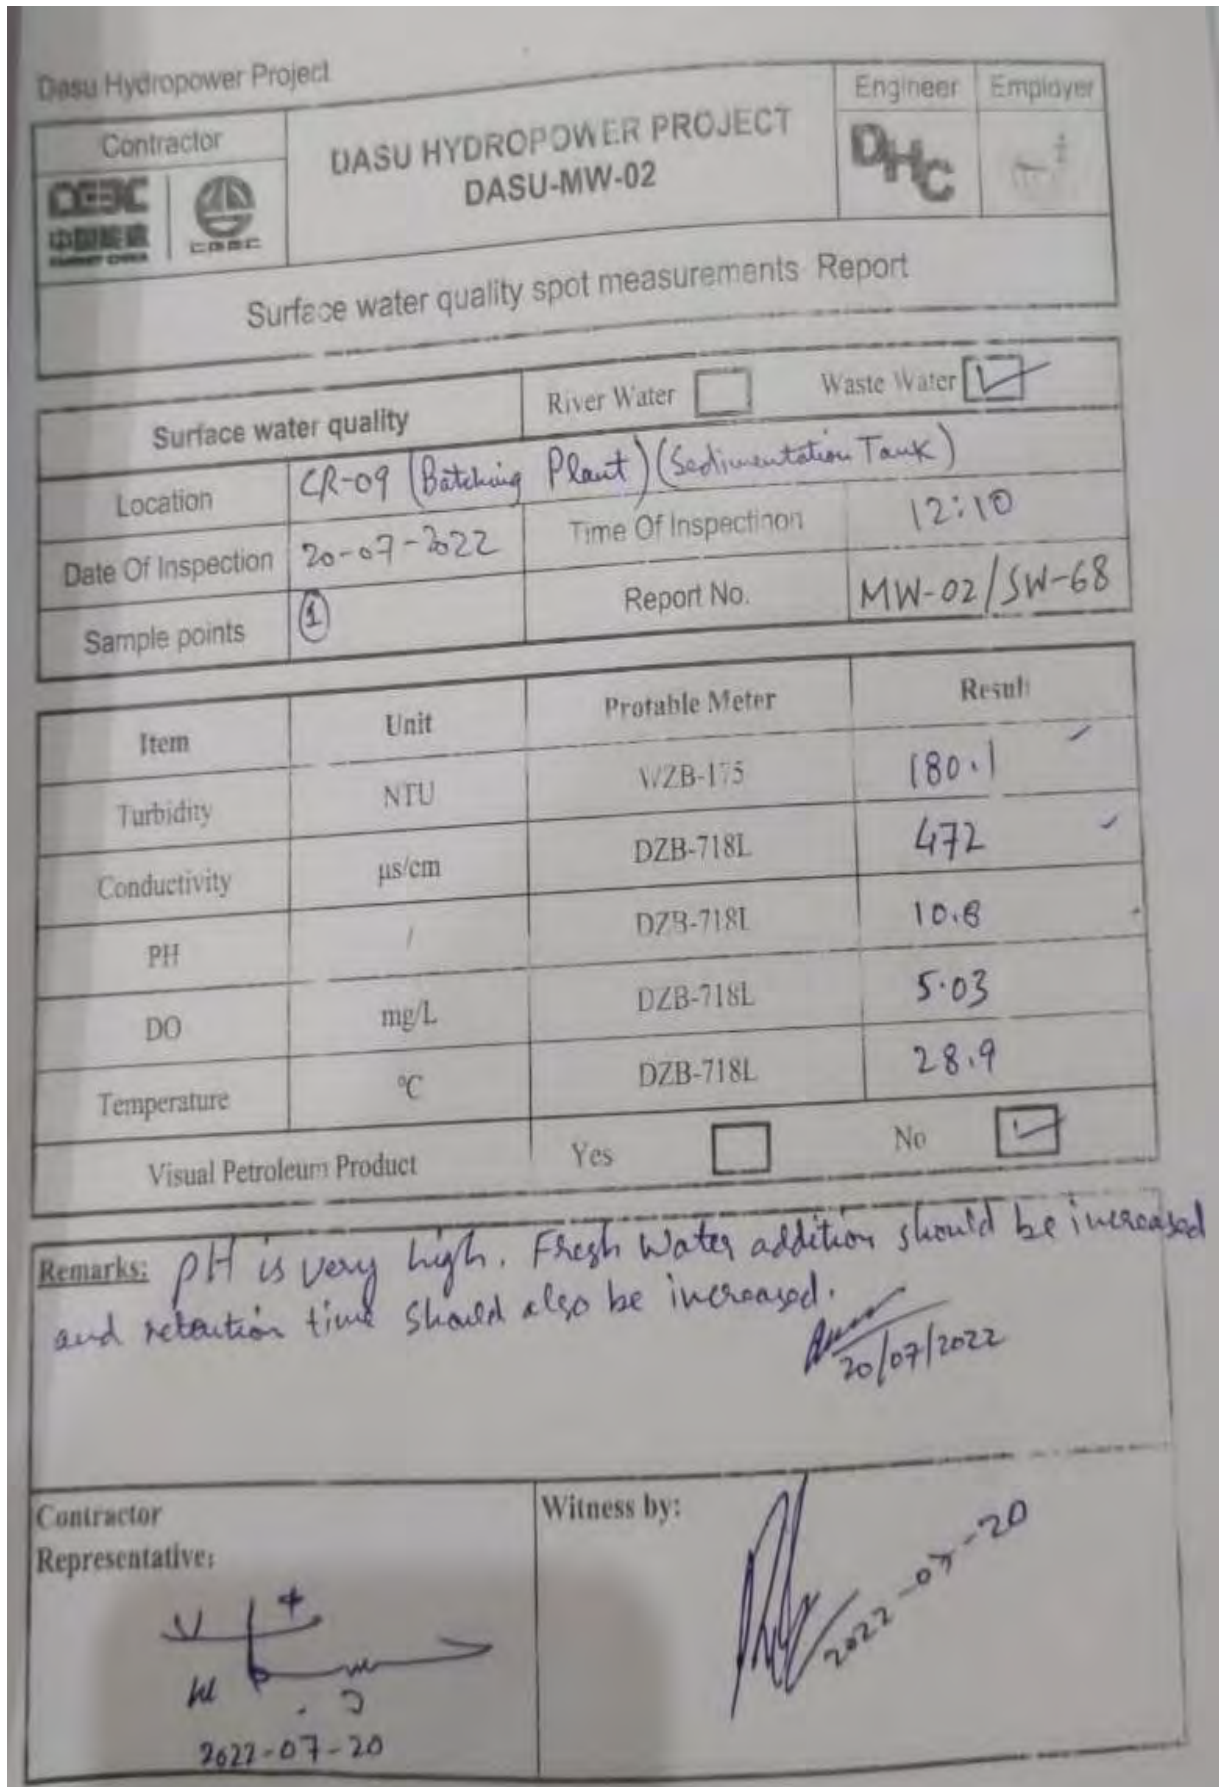 Dasu Hydropower Project
Contractor
DASU HYDROPOWER PROJECT
DASU-MW-02
Engineer Employer
中国能建
CGGC
DHC
Surface water quality spot measurements Report
Surface water quality River Water Waste Water
Location CR-09 (Batching Plant) (Sedimentation Tank)
Date Of Inspection 20-07-2022 Time Of Inspectinon 12:10
Sample points 1 Report No. MW-02/SW-68
Item Unit Protable Meter Result
Turbidity NTU WZB-175 180.1
Conductivity µs/cm DZB-718L 472
PH / DZB-718L 10.8
DO mg/L DZB-718L 5.03
Temperature ℃ DZB-718L 28.9
Visual Petroleum Product Yes No
Remarks: pH is very high. Fresh Water addition should be increased
and retention time should also be increased.
20/07/2022
Contractor
Representative:
Witness by:
2022-07-20
2022-07-20